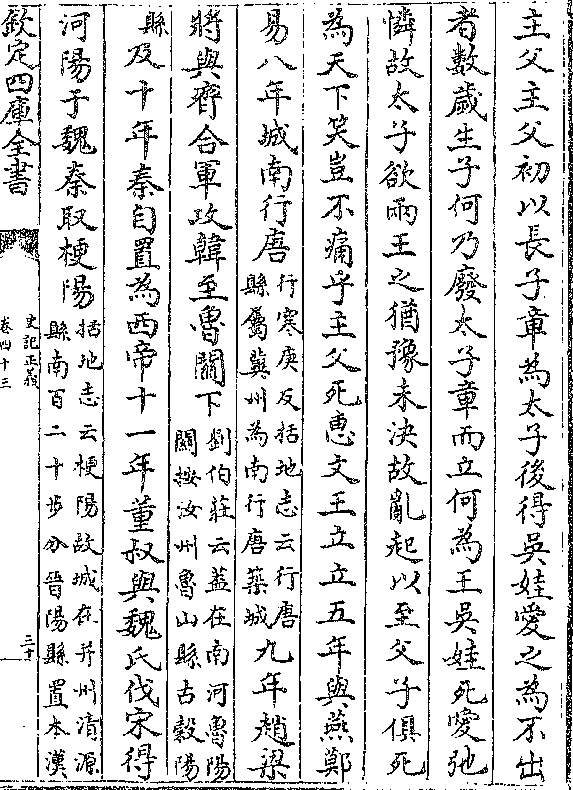 主父主父初以長子章為太子後得吳娃愛之為不出
者數歲生子何乃廢太子章而立何為王吳娃死愛弛
憐故太子欲兩王之猶豫未決故亂起以至父子俱死
為天下笑豈不痛乎主父死惠文王立立五年與燕鄚
易八年城南行唐行寒庚反括地志云行唐
縣屬冀州為南行唐築城九年趙梁
將與齊合軍攻韓至魯關下劉伯莊云蓋在南河魯陽
關按汝州魯山縣古穀陽
縣及十年秦自置為西帝十一年董叔與魏氏伐宋得
河陽于魏秦取梗陽括地志云梗陽故城在并州清源
縣南百二十步分晉陽縣置本漢
欽定四庫全書
史記正義
卷四十三
三十